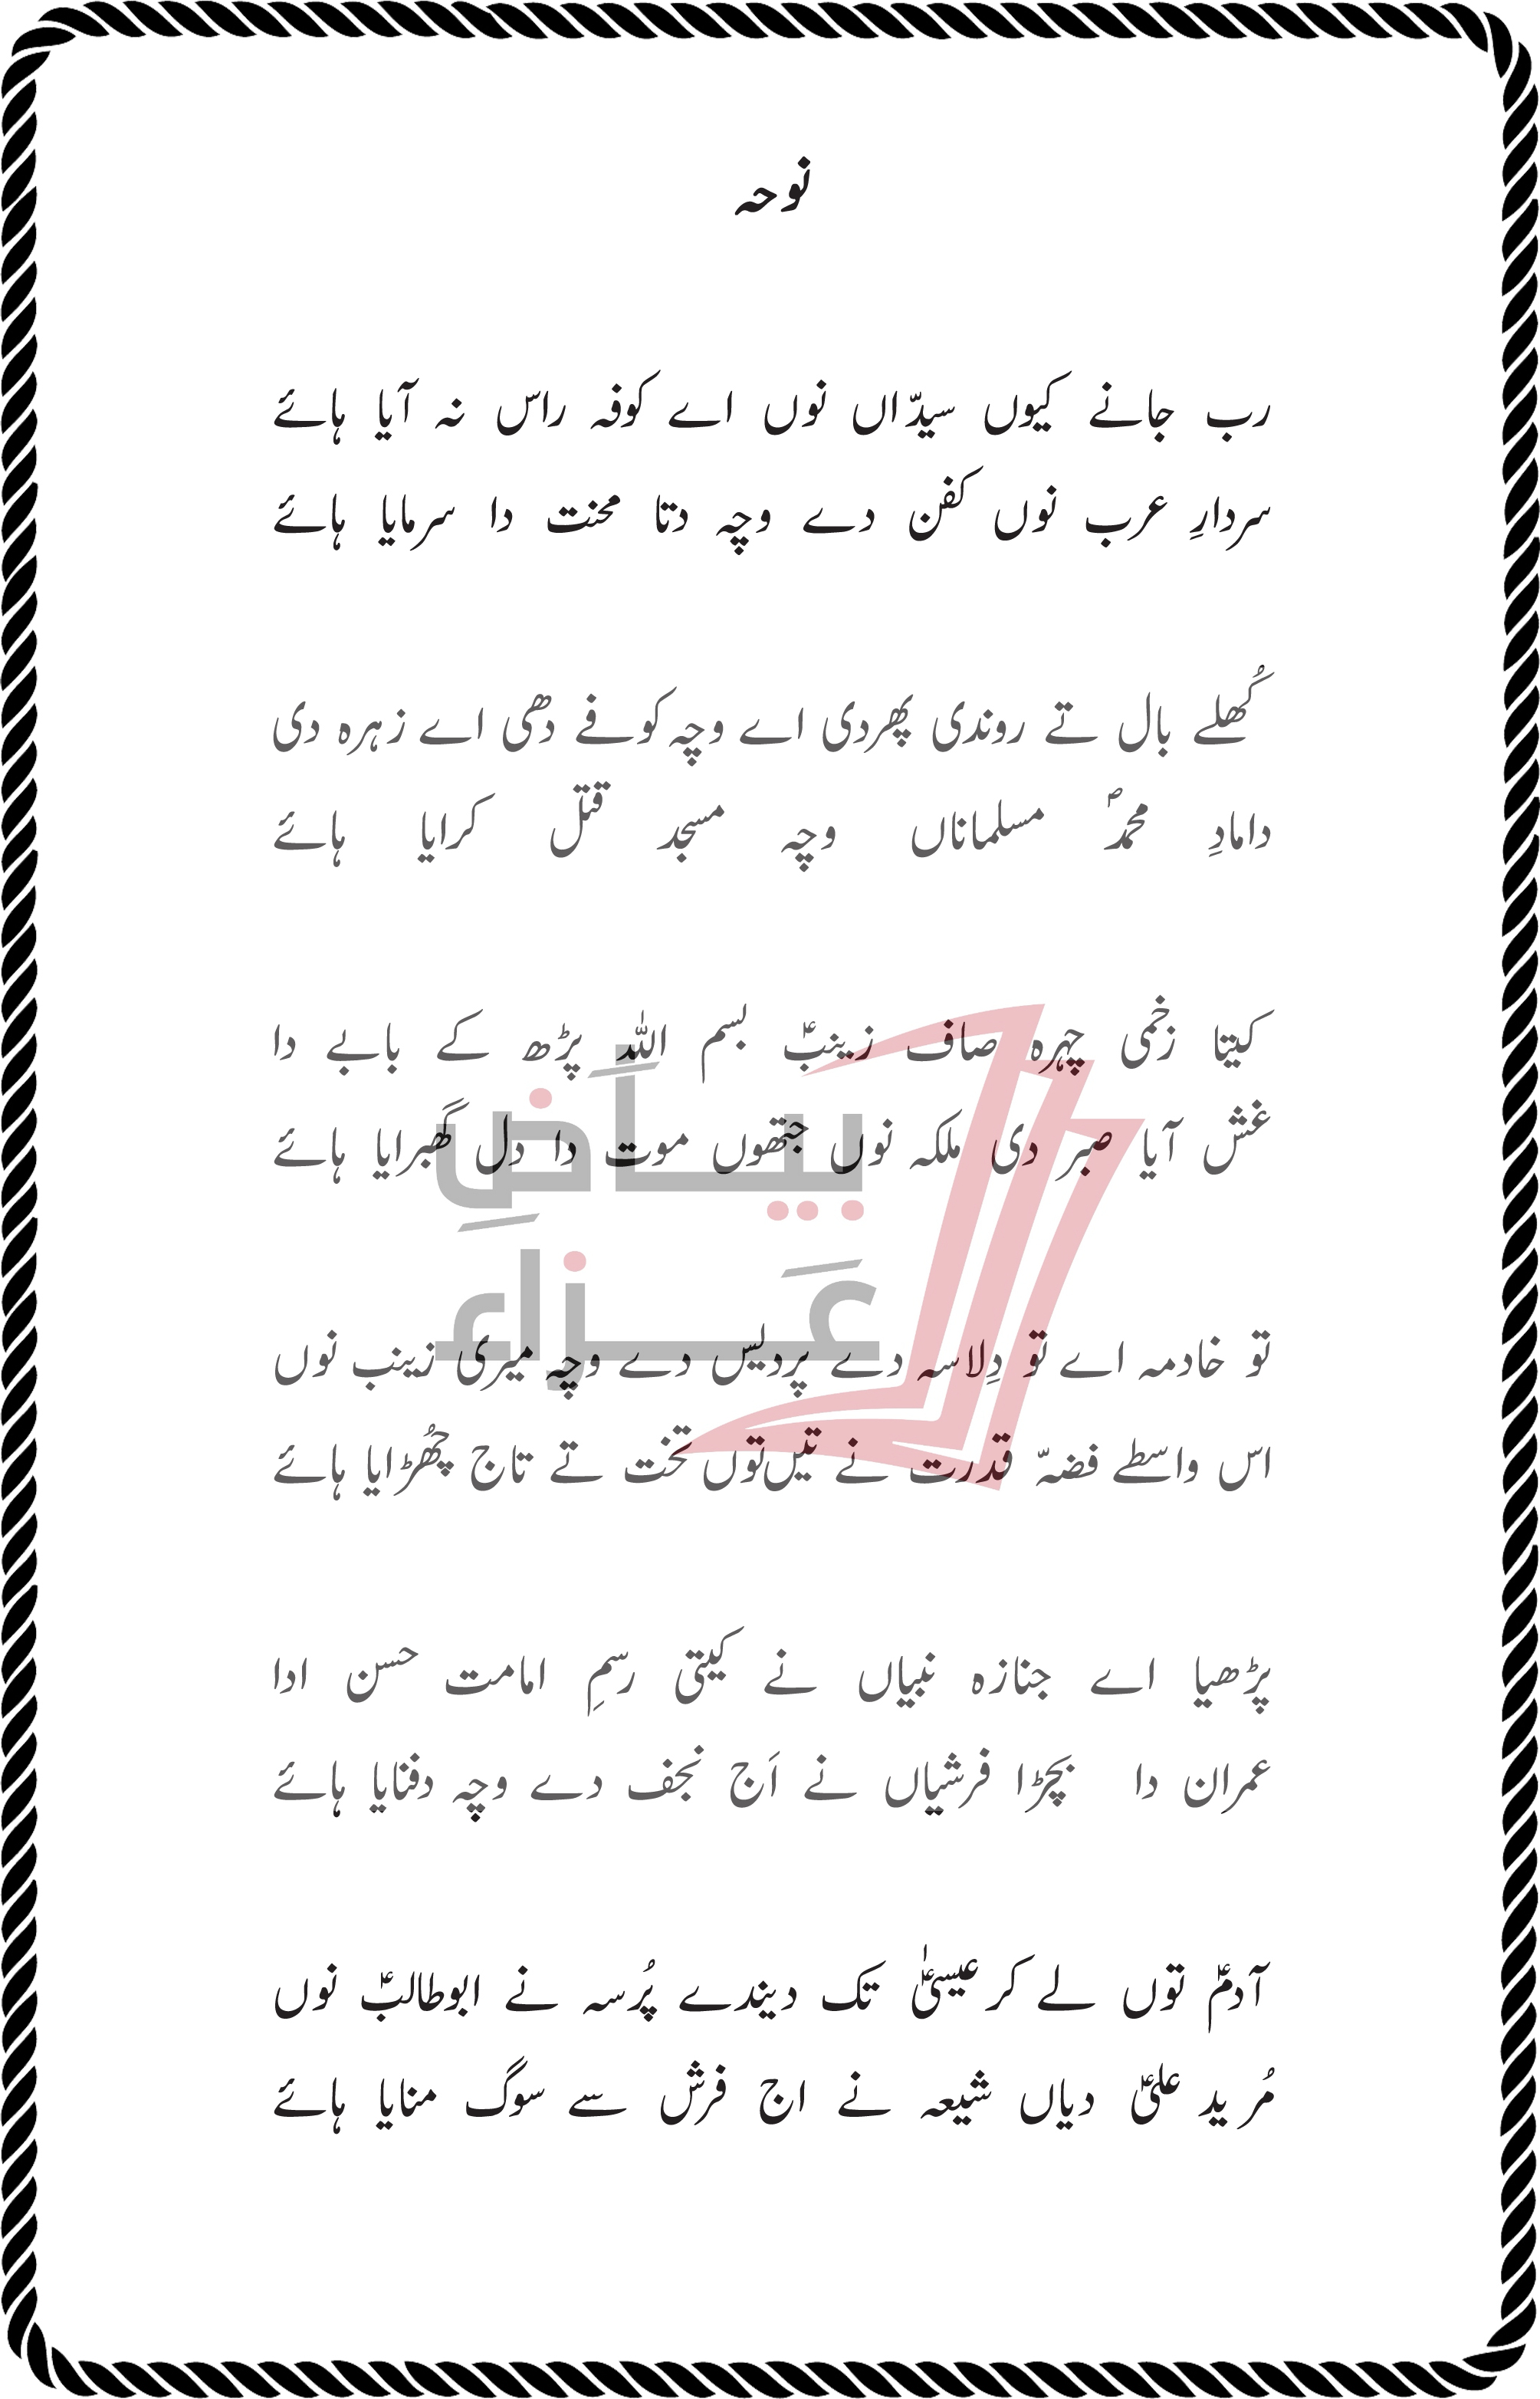 نوحہ
رب جانے کیوں سیدّاں نوں اے کوفہ راس نہ آیا ہائے
سردارِ عرب نوں کفن دے وچہ دتا محنت دا سرمایا ہائے
کُھلے بال تے روندی پھردی اے وچہ کوفے دھی اے زہرہ دی
دامادِ محمدؐ مسلماناں وچہ مسجد قتل کرایا ہائے
کیتا زخمی چہرہ صاف زینبؑ بسم اللہ پڑھ کے بابے دا
غش آیا صبر دی ملکہ نوں جتھوں موت دا دل گھبرایا ہائے
بیاضِ
عَزاء
تو خادمہ اے تو دِلاسہ دے پردیس دے وچہ میری زینب نوں
اس واسطے فضہّ قدرت نے تیں توں تخت تے تاج چُھڑایا ہائے
پڑھیا اے جنازہ نبیاں نے کیتی رسمِ امامت حسن ادا
عمران دا بچڑا فرشیاں نے اَج نجف دے وچہ دفنایا ہائے
آدمؑ توں لے کر عیسیٰؑ تک دیندے پُرسہ نے ابوطالبؑ نوں
مُرید علیؑ دیاں شیعہ نے اج فرش سے سوگ منایا ہائے